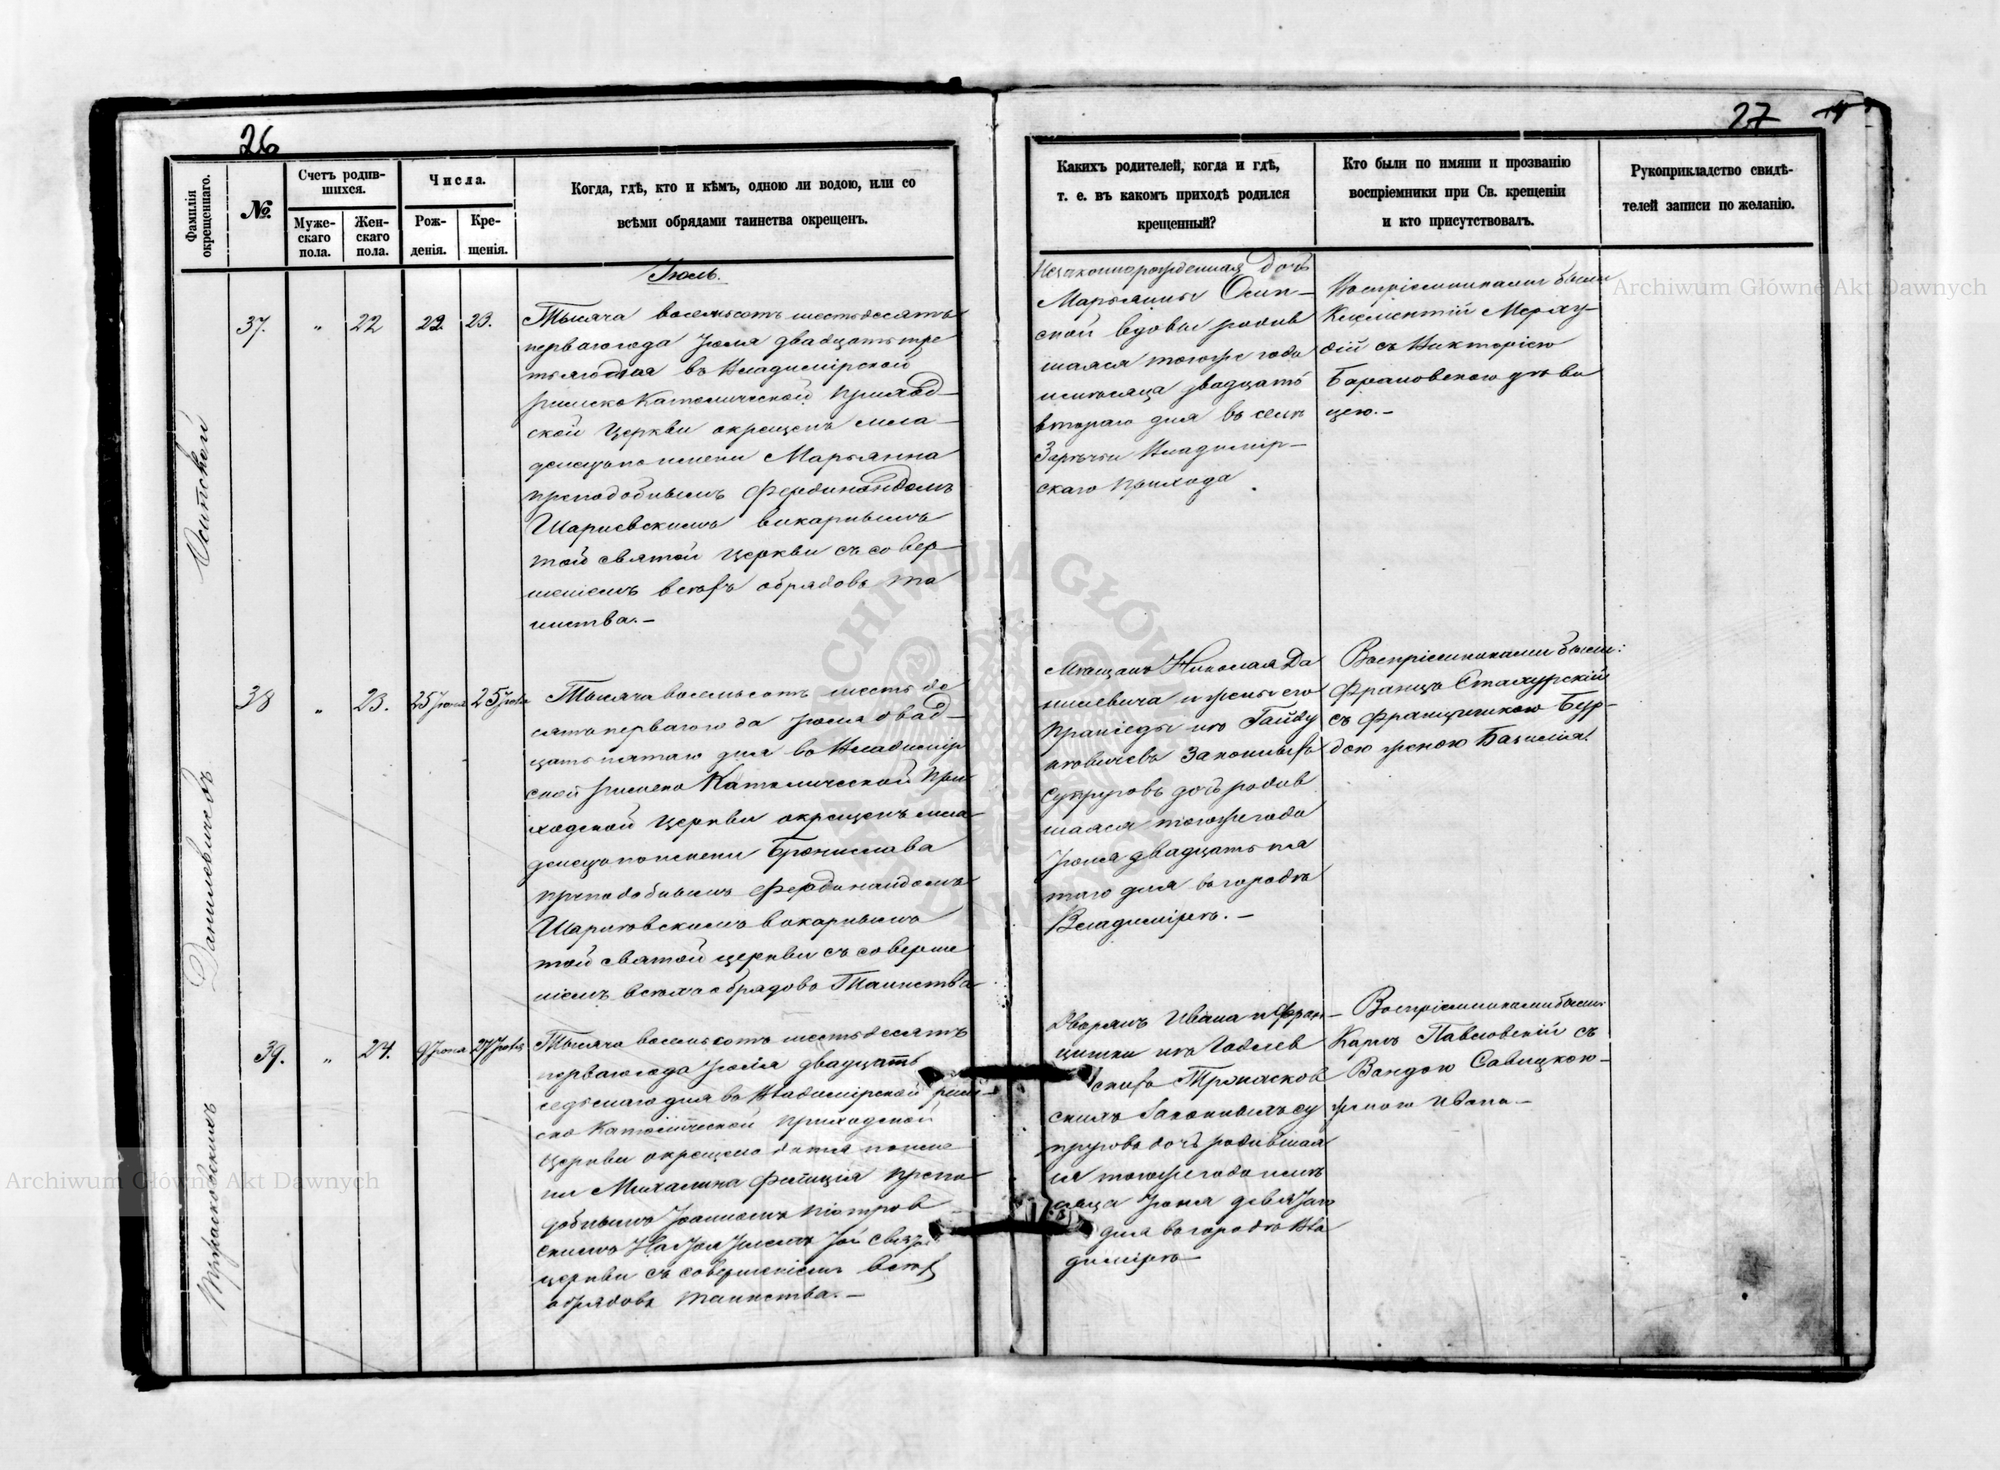 26
Фамилія окрещеннаго.
№.
Счетъ родив-
шихся.
Муже-
скаго
пола.
Жен-
скаго
пола.
Числа.
Рож-
денія.
Кре-
щенія.
Когда, гдѣ, кто и кѣмъ, одною ли водою, или со
всѣми обрядами таинства окрещенъ.
Іюль.
Осипской
37.
"
22
22.
23.
Тысяча восемьсотъ шестьдесятъ
перваго года Іюля двадцать тре
тьяго дня въ Владимірской
римско Католической Приход-
ской Церкви окрещенъ мла-
денецъ по имени Марьянна
преподобнымъ Фердинандомъ
викарнымъ
той святой Церкви съ совер-
шеніемъ всѣхъ обрядовъ та
инства.-
Данилевичовъ
38
"
23.
25 Іюля
25 Іюля
Тысяча восемьсотъ шесть де
сятъ перваго года Іюля двад-
цать пятаго дня въ Владимір
ской римско Католической При
ходской Церкви окрещенъ мла-
денецъ по имени Бронислава
преподобнымъ Фердинандомъ
викарнымъ
той святой церкви съ соверше
ніемъ всѣхъ обрядовъ Таинства
39.
"
24.
9 Іюня
27 Іюля
Тысяча восемьсотъ шестьдесятъ
перваго года Іюля двадцать
седьмаго дня въ Владимірской рим-
ско Католической Приходской
Церкви окрещено дитя по име
ни Михалина Фелиція препо
добнымъ Іоанномъ Піотров
скимъ Настоятелемъ той святой
церкви съ совершеніемъ всѣхъ
обрядовъ таинства.-
27
Какихъ родителей, когда и гдѣ,
т. е. въ какомъ приходѣ родился
крещенный?
Кто были по имяни и прозванію
воспріемники при Св. крещеніи
и кто присутствовалъ.
Рукоприкладство свидѣ-
телей записи по желанію.
Незаконнорожденная дочь
Марьянны Осип-
ской вдовы родив
шаяся тогоже года
и мѣсяца двадцать
втораго дня въ селѣ
Заречьи Владимір-
скаго Прихода
Воспріемниками были
съ Викторіею
Барановскою дѣви
цею.-
Мѣщанъ Николая Да
нилевича и жены его
законныхъ
Супруговъ дочь родив
шаяся тогоже года
Іюля двадцать пя
таго дня въ городкѣ
Владимірцѣ.-
Воспріемниками были:
Францъ Стахурскій
съ Францишкою Бур-
дою женою Базилія.
Дворянъ Ивана и Фран-
цишки изъ
скихъ законныхъ су
пруговъ дочь родившая
ся тогоже года мѣ
сяца Іюня девятаго
дня въ городкѣ Вла
димірцѣ
Воспріемниками были
Карлъ Павловскій съ
Вандою Савицкою-
женою Ивана.-
Archiwum Główne Akt Dawnych
Archiwum Główne Akt Dawnych
ARCHIWUM GŁÓWNE AKT DAWNYCH